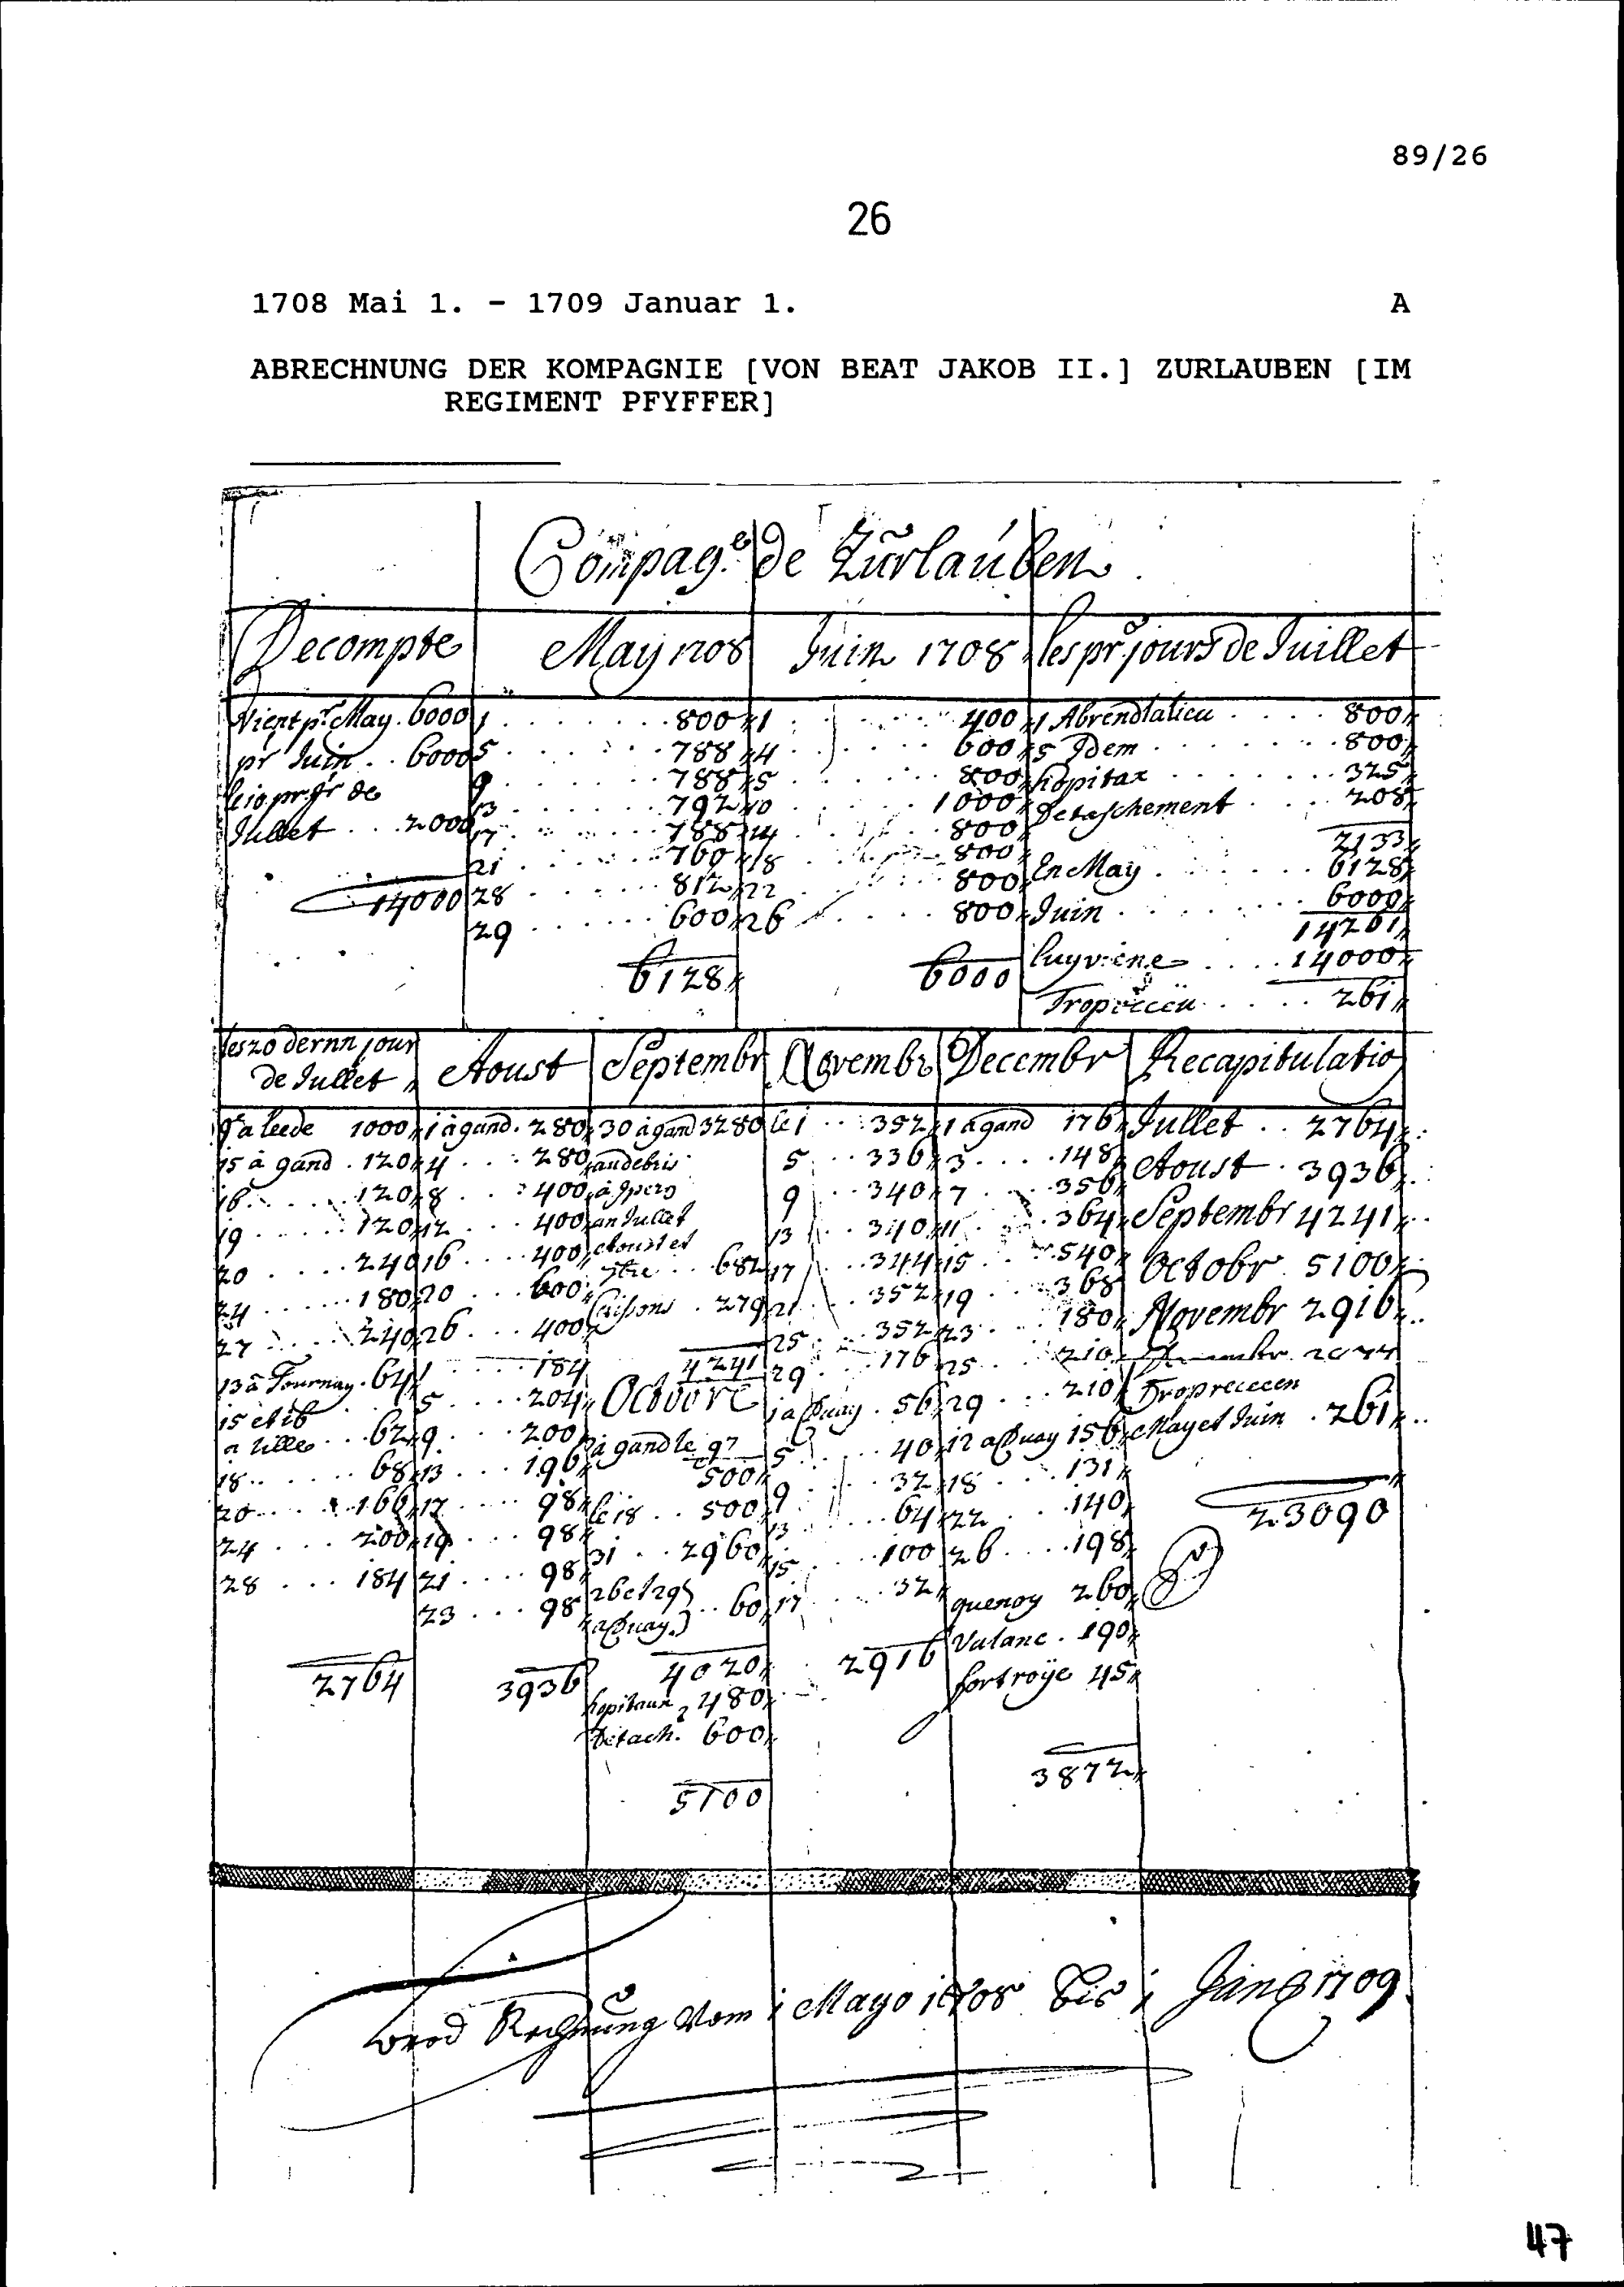 89/26
26
1708 Mai 1. - 1709 Januar 1. A
ABRECHNUNG DER KOMPAGNIE [VON BEAT JAKOB II.] ZURLAUBEN [IM
REGIMENT PFYFFER]
Compag.e de Zurlauben
Decompte
Vient pr May . 6000
pr Juin . . 6000
le 10 pr. jr de
Jullet . . . 2000
14000
May 1708
1 . . . 800
5 . . . 788
9 . . . 788
13 . . . 792
17 . . . 788
21 . . . 760
28 . . . 812
29 . . . 600
6128
Juin 1708
1 . . . 400
4 . . . 600
5 . . . 800
10 . . . 1000
14 . . . 800
18 . . . 800
22 . . . 800
26 . . . 800
6000
les pr jours de Juillet
1 . . . 800
5 Idem . . . 800
hopitax . . . 325
Detaschement . . . 208
2133
En May . . . 6128
Juin . . . 6000
14261
luy viene . . . 14000
Trop . . . 261
les 20 dernn jour
de Jullet
9 a leede 1000
15 à gand . 120
16 . . . 120
19 . . . 120
20 . . . 240
24 . . . 180
27 . . . 240
13 à Tournay . 64
15 et 16
a lille . . 62
18 . . . 68
20 . . . 166
24 . . . 200
28 . . . 184
2764
Aoust
1 à gand . 280
4 . . . 280
8 . . . 400
12 . . . 400
16 . . . 400
20 . . . 600
26 . . . 400
1 . . . 184
5 . . . 204
9 . . . 200
13 . . . 196
17 . . . 98
19 . . . 98
21 . . . 98
23 . . . 98
3936
Septembr
30 à gand 3280
à Ipers
an Jullet
Aoust et
7bre . . 682
. 279
4241
Octobre
à gand le 9
500
le 18 . . 500
31 . . 2960
26 et 29
a Duay . . 60
4020
hopitaux 480
Détach. 600
5100
Novembr
le 1 . . . 352
5 . . . 336
9 . . . 340
13 . . . 340
17 . . . 344
21 . . . 352
25 . . . 352
29 . . . 176
1 a Duay . 56
5 . . . 40
9 . . . 32
13 . . . 64
15 . . . 100
17 . . . 32
2916
Decembr
1 à gand 176
3 . . . 148
7 . . . 356
11 . . . 364
15 . . . 540
19 . . . 368
23 . . . 180
25 . . . 210
29 . . . 210
12 a Duay 156
18 . . . 131
22 . . . 140
26 . . . 198
quenoy 260
Valanc . 190
fort roÿe 45
3872
Recapitulatio
Jullet . . 2764
Aoust . 3936
Septembr 4241
Octobr 5100
Novembr 2916
Trop
May et Juin . 261
23090
brod Rechnung Vom 1 Mayo 1708 bis 1 1709
47